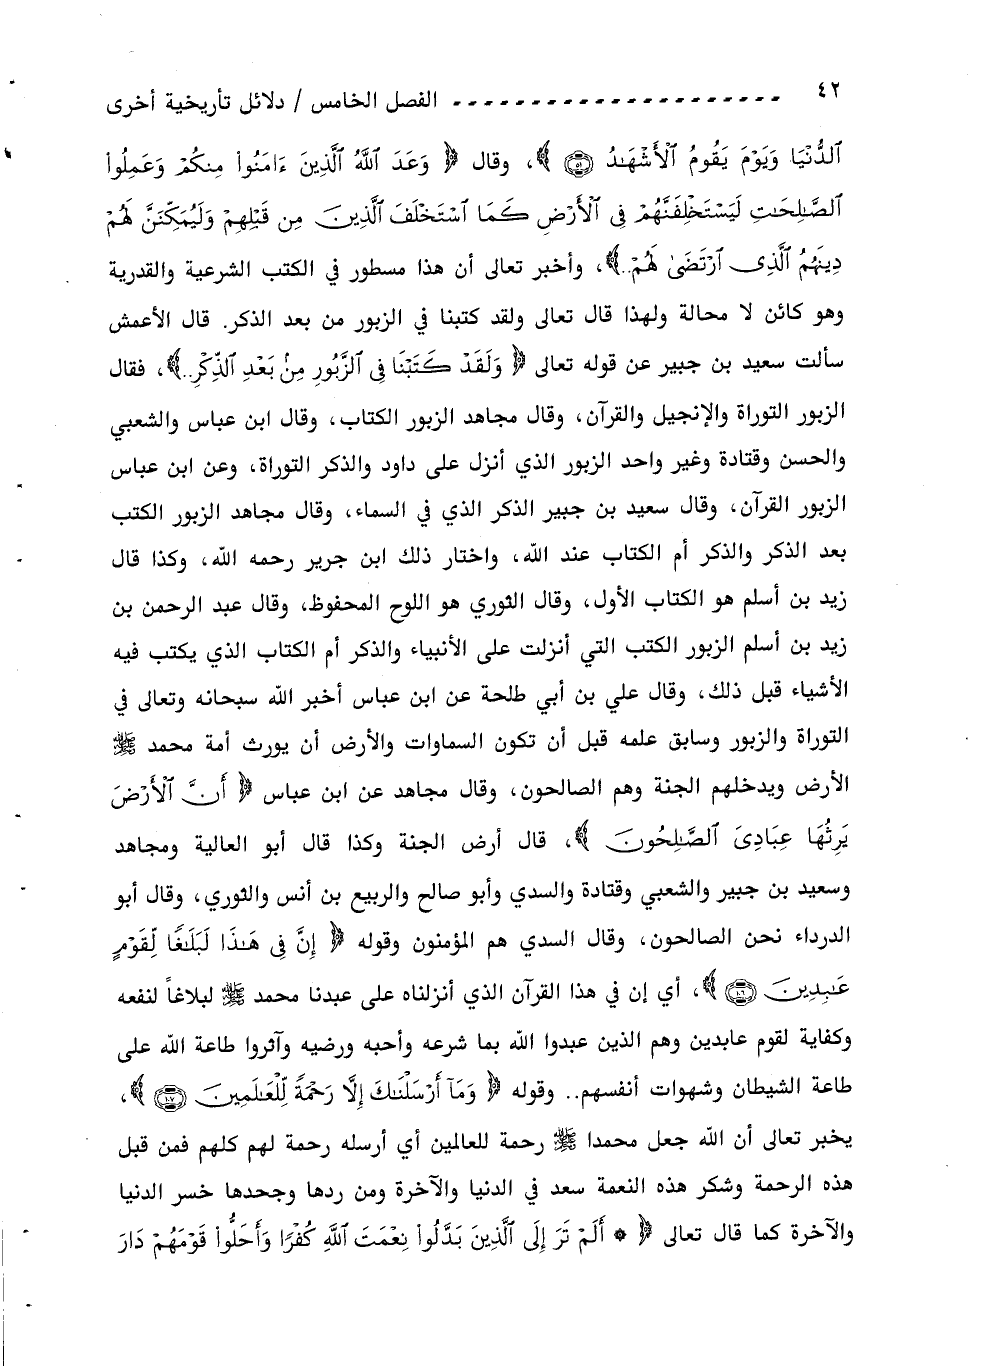 ٤٢ - - - - - - - - - - - - - - - - - - - - - - - الفصل الخامس / دلائل تأريخية أخرى
ٱلدُّنْيَا وَيَوْمَ يَقُومُ ٱلْأَشْهَـٰدُ ﴿٥١﴾ ﴾، وقال ﴿ وَعَدَ ٱللَّهُ ٱلَّذِينَ ءَامَنُوا۟ مِنكُمْ وَعَمِلُوا۟
ٱلصَّـٰلِحَـٰتِ لَيَسْتَخْلِفَنَّهُمْ فِى ٱلْأَرْضِ كَمَا ٱسْتَخْلَفَ ٱلَّذِينَ مِن قَبْلِهِمْ وَلَيُمَكِّنَنَّ لَهُمْ
دِينَهُمُ ٱلَّذِى ٱرْتَضَىٰ لَهُمْ..﴾، وأخبر تعالى أن هذا مسطور في الكتب الشرعية والقدرية
وهو كائن لا محالة ولهذا قال تعالى ولقد كتبنا في الزبور من بعد الذكر. قال الأعمش
سألت سعيد بن جبير عن قوله تعالى ﴿ وَلَقَدْ كَتَبْنَا فِى ٱلزَّبُورِ مِنۢ بَعْدِ ٱلذِّكْرِ..﴾، فقال
الزبور التوراة والإنجيل والقرآن، وقال مجاهد الزبور الكتاب، وقال ابن عباس والشعبي
والحسن وقتادة وغير واحد الزبور الذي أنزل على داود والذكر التوراة، وعن ابن عباس
الزبور القرآن، وقال سعيد بن جبير الذكر الذي في السماء، وقال مجاهد الزبور الكتب
بعد الذكر والذكر أم الكتاب عند الله، واختار ذلك ابن جرير رحمه الله، وكذا قال
زيد بن أسلم هو الكتاب الأول، وقال الثوري هو اللوح المحفوظ، وقال عبد الرحمن بن
زيد بن أسلم الزبور الكتب التي أنزلت على الأنبياء والذكر أم الكتاب الذي يكتب فيه
الأشياء قبل ذلك، وقال علي بن أبي طلحة عن ابن عباس أخبر الله سبحانه وتعالى في
التوراة والزبور وسابق علمه قبل أن تكون السماوات والأرض أن يورث أمة محمد ﷺ
الأرض ويدخلهم الجنة وهم الصالحون، وقال مجاهد عن ابن عباس ﴿ أَنَّ ٱلْأَرْضَ
يَرِثُهَا عِبَادِىَ ٱلصَّـٰلِحُونَ ﴾، قال أرض الجنة وكذا قال أبو العالية ومجاهد
وسعيد بن جبير والشعبي وقتادة والسدي وأبو صالح والربيع بن أنس والثوري، وقال أبو
الدرداء نحن الصالحون، وقال السدي هم المؤمنون وقوله ﴿ إِنَّ فِى هَـٰذَا لَبَلَـٰغًا لِّقَوْمٍ
عَـٰبِدِينَ ﴿١٠٦﴾ ﴾، أي إن في هذا القرآن الذي أنزلناه على عبدنا محمد ﷺ لبلاغاً لنفعه
وكفاية لقوم عابدين وهم الذين عبدوا الله بما شرعه وأحبه ورضيه وآثروا طاعة الله على
طاعة الشيطان وشهوات أنفسهم.. وقوله ﴿ وَمَآ أَرْسَلْنَـٰكَ إِلَّا رَحْمَةً لِّلْعَـٰلَمِينَ ﴿١٠٧﴾ ﴾،
يخبر تعالى أن الله جعل محمدا ﷺ رحمة للعالمين أي أرسله رحمة لهم كلهم فمن قبل
هذه الرحمة وشكر هذه النعمة سعد في الدنيا والآخرة ومن ردها وجحدها خسر الدنيا
والآخرة كما قال تعالى ﴿ * أَلَمْ تَرَ إِلَى ٱلَّذِينَ بَدَّلُوا۟ نِعْمَتَ ٱللَّهِ كُفْرًا وَأَحَلُّوا۟ قَوْمَهُمْ دَارَ